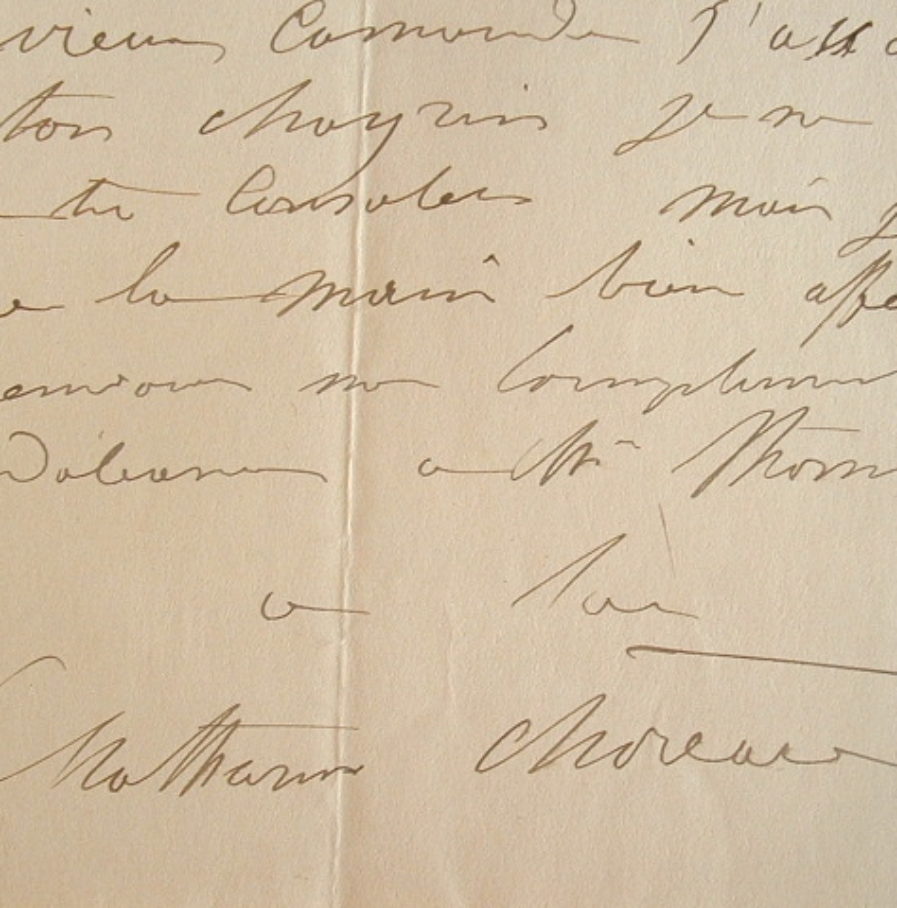 vieux Camarade J'ass
ton chagrin je ne
te consoler mais j
e la main bien affe
mes compliments
Déléane a Mr Thom
a toi
Mathurin Moreau